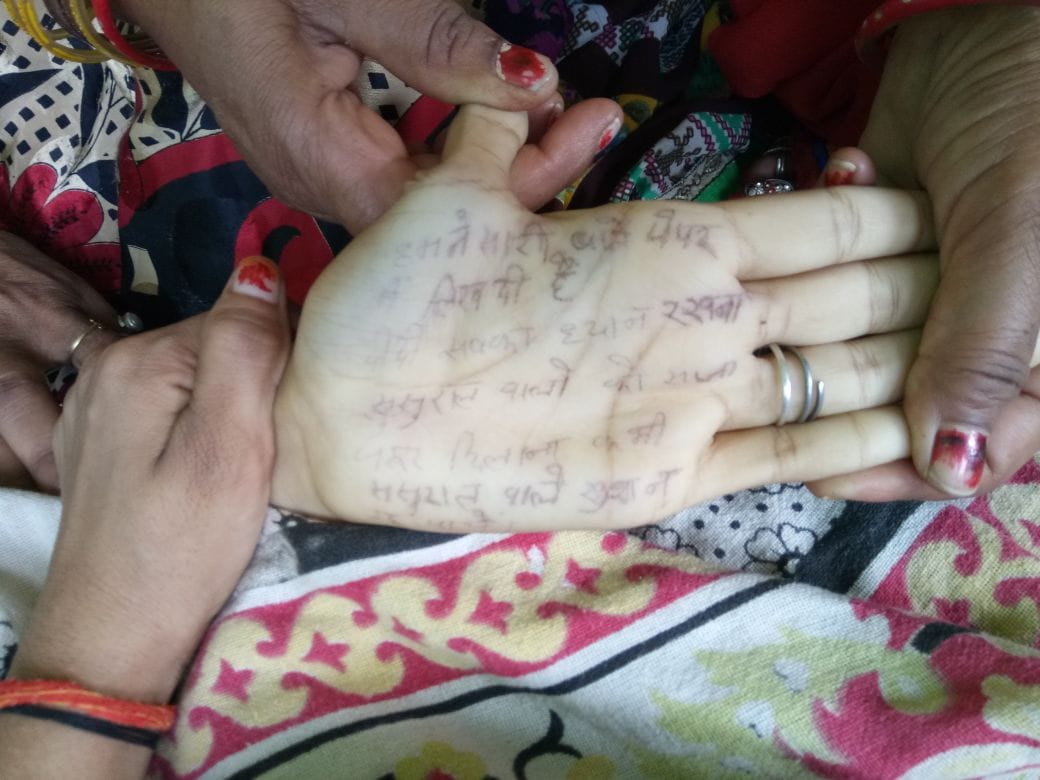 हमने सारी बाते पेपर
में लिख दी है
सबका ध्यान रखना
ससुराल वालो को सजा
जरूर दिलाना कभी
ससुराल वाले खुश न